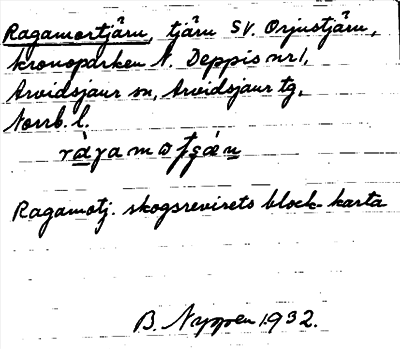 Ragamortjärn, tjärn SV. Orjustjärn,
kronoparken N. Deppis nr 1,
Arvidsjaur sn, Arvidsjaur tg,
Norrb. l.
Ragamotj. skogsrevirets block-karta
B. Nyppen 1932.